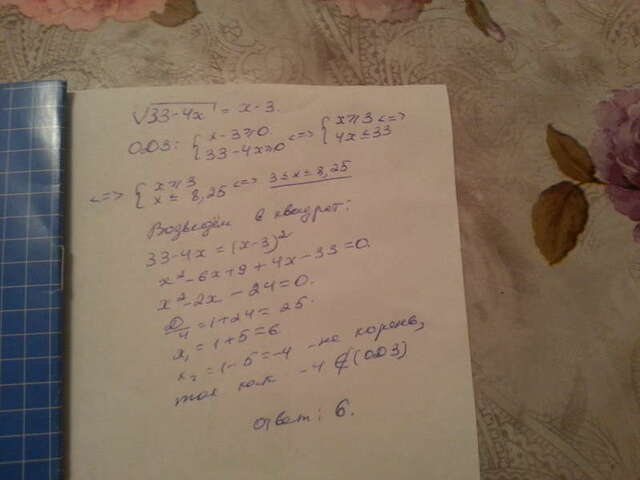 √33-4x = x-3.
ОДЗ: { x-3≥0 33-4x≥0 <=> { x≥3 4x≤33 <=>
<=> { x≥3 x≤8,25 <=> 3≤x≤8,25
Возведём в квадрат:
33-4x=(x-3)²
x²-6x+9+4x-33=0.
x²-2x-24=0.
D/4=1+24=25.
x₁=1+5=6.
x₂=1-5=-4 -не корень,
так как -4 ∉(ОДЗ)
Ответ: 6.